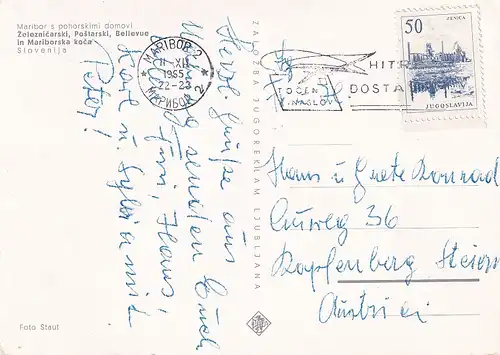 Maribor s pohorskimi domovi
Železničarski, Poštarski, Bellevue
in Mariborska koča
Slovenija
Herzl. Grüße aus
senden Euch
Hans,
Karl u. Sylvia und
Peter!
Foto Šteut
ZALOŽBA JUGOREKLAM LJUBLJANA
MARIBOR 2
11-XII
1965
22-23
МАРИБОР 2
TOČEN
NASLOV
HITR
DOSTA
50
ZENICA
JUGOSLAVIJA
Hans u Grete Konrad
Auweg 36
Kapfenberg Steierm
Austria